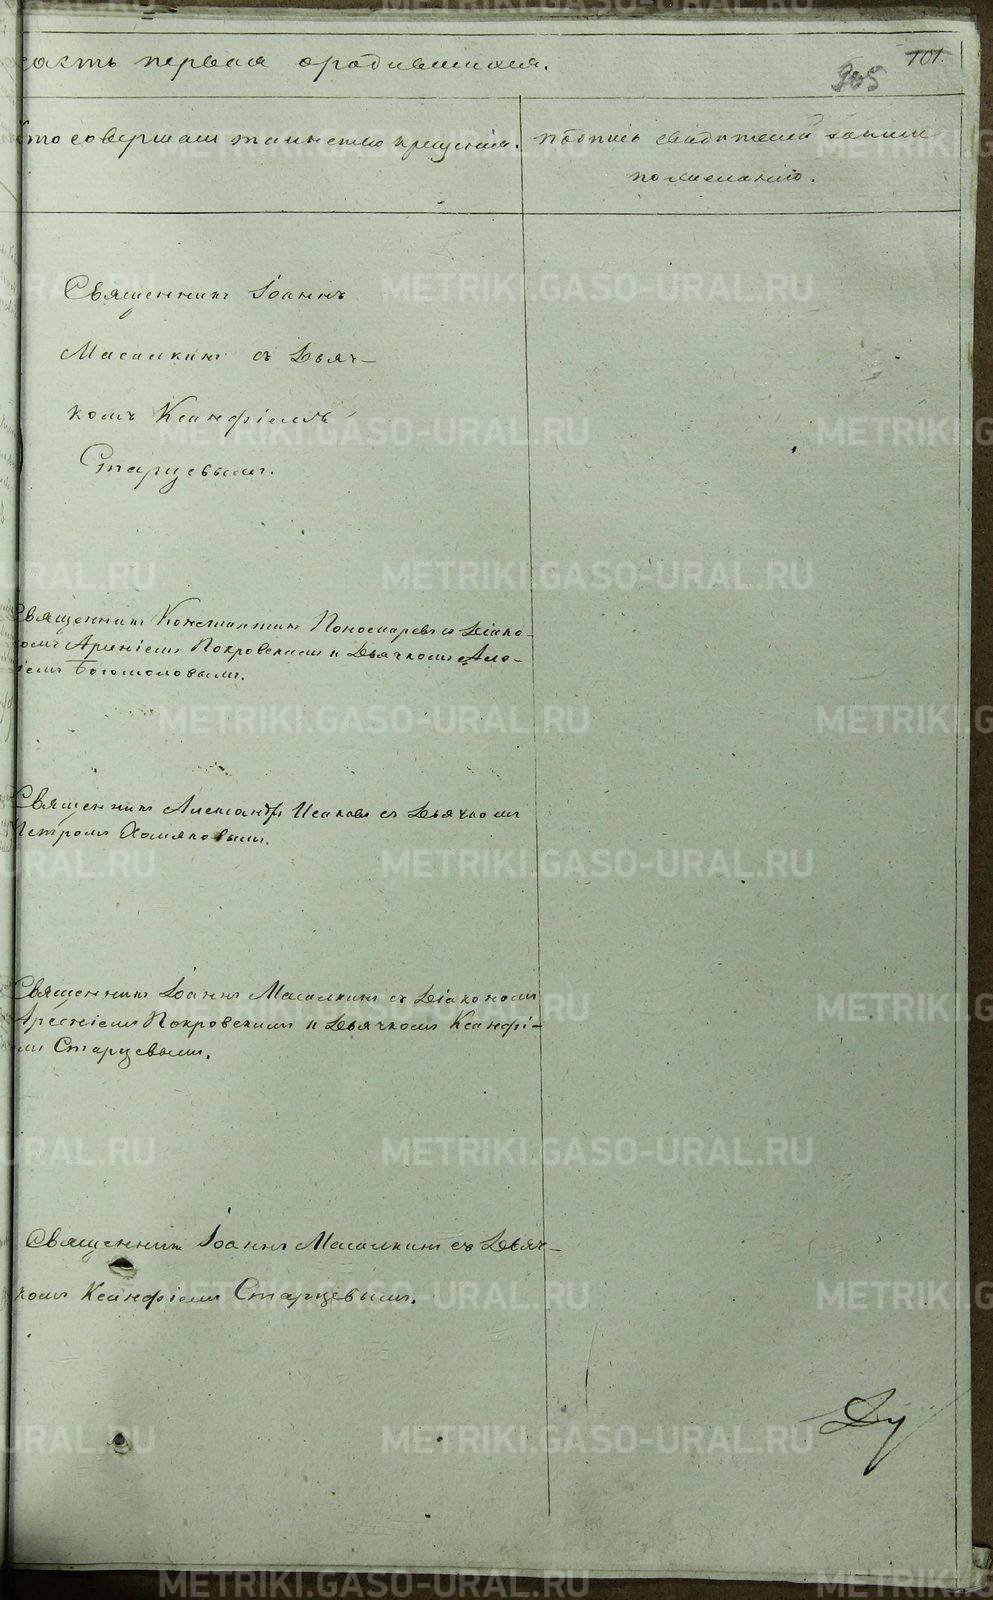 часть первая о родившихся.
101.
305
Кто совершал таинство крещенія.
Подпись свидѣтелей записи
по желанію.
Священникъ Іоаннъ
Масалкинъ съ Дьяч-
комъ Ксанфіемъ
Старцевымъ.
Священникъ Константинъ Пономаревъ съ Діако-
номъ Арсеніемъ Покровскимъ и Дьячкомъ Але-
Богомоловымъ.
Священникъ Александръ Исаковъ съ Дьячкомъ
Петромъ Хомяковымъ.
Священникъ Іоаннъ Масалкинъ съ Діакономъ
Арсеніемъ Покровскимъ и Дьячкомъ Ксанфі-
емъ Старцевымъ.
Священникъ Іоаннъ Масалкинъ съ Дьяч-
комъ Ксанфіемъ Старцевымъ.
METRIKI.GASO-URAL.RU